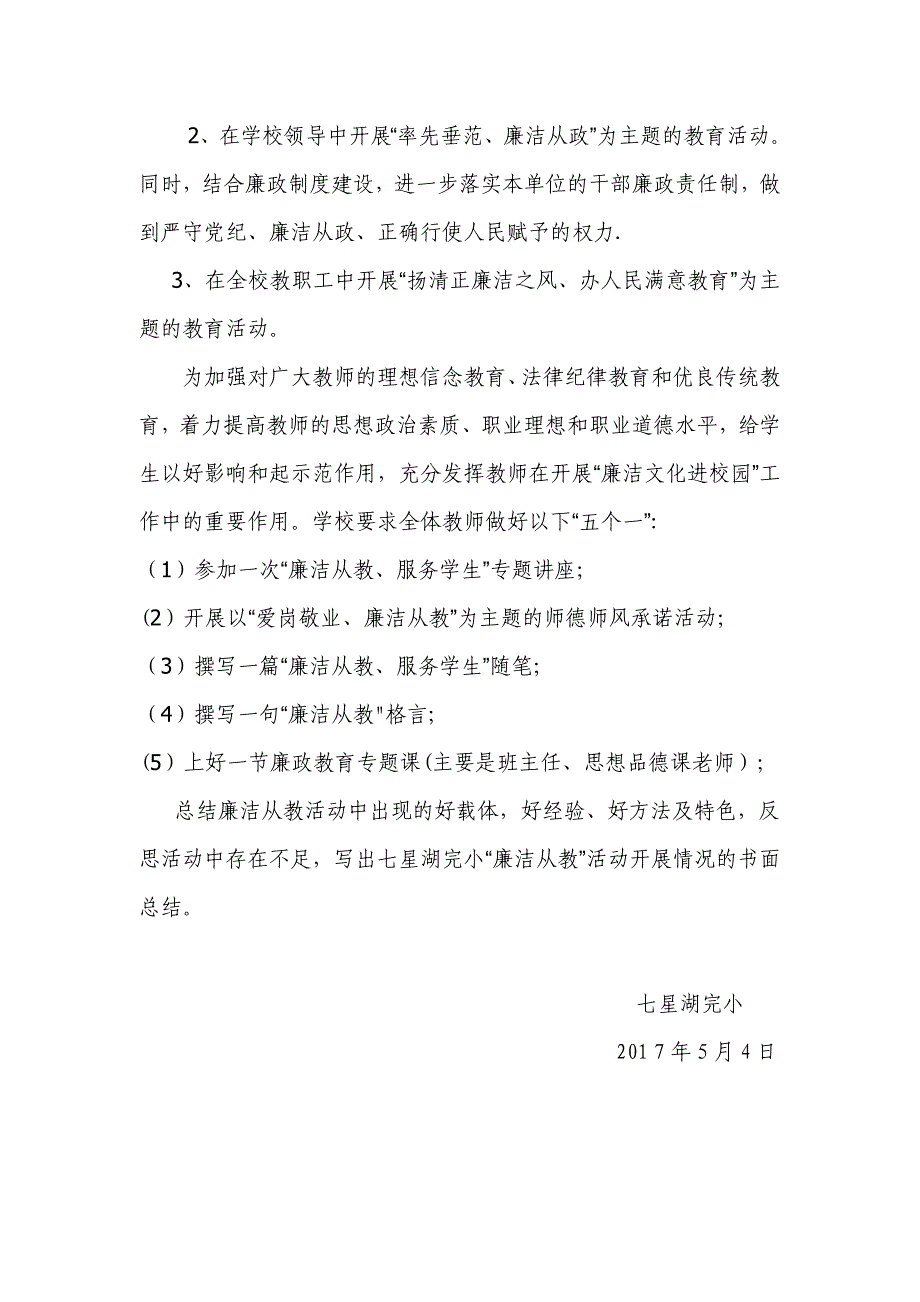 2、在学校领导中开展“率先垂范、廉洁从政”为主题的教育活动。
同时，结合廉政制度建设，进一步落实本单位的干部廉政责任制，做
到严守党纪、廉洁从政、正确行使人民赋予的权力.
3、在全校教职工中开展“扬清正廉洁之风、办人民满意教育”为主
题的教育活动。
为加强对广大教师的理想信念教育、法律纪律教育和优良传统教
育，着力提高教师的思想政治素质、职业理想和职业道德水平，给学
生以好影响和起示范作用，充分发挥教师在开展“廉洁文化进校园”工
作中的重要作用。学校要求全体教师做好以下“五个一”：
（1）参加一次“廉洁从教、服务学生”专题讲座；
(2）开展以“爱岗敬业、廉洁从教”为主题的师德师风承诺活动；
（3）撰写一篇“廉洁从教、服务学生”随笔；
（4）撰写一句“廉洁从教"格言；
(5）上好一节廉政教育专题课(主要是班主任、思想品德课老师）；
总结廉洁从教活动中出现的好载体，好经验、好方法及特色，反
思活动中存在不足，写出七星湖完小“廉洁从教”活动开展情况的书面
总结。
七星湖完小
2017年5月4日